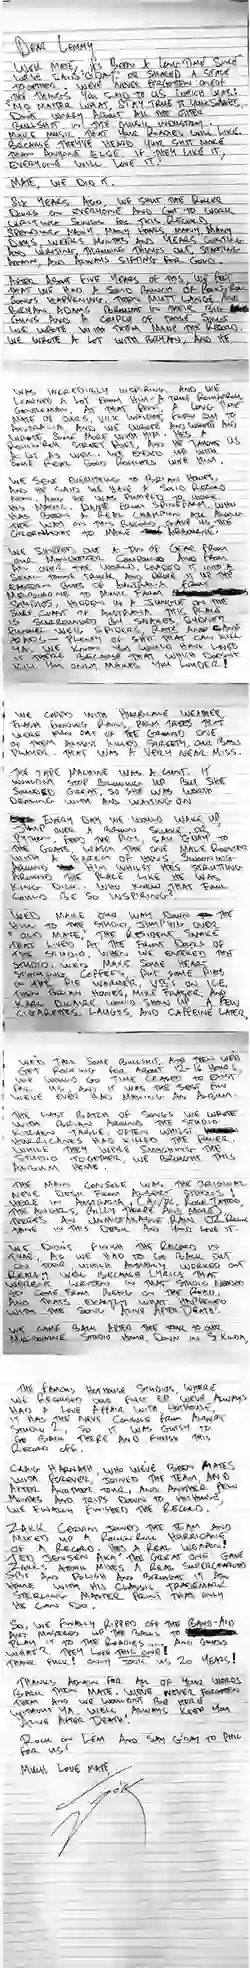 DEAR LEMMY,
WELL MATE, IT'S BEEN A LONG TIME SINCE
WE'VE SAID G'DAY OR SHARED A STAGE
TOGETHER. WE'VE NEVER FORGOTTEN ONE OF
THE THINGS YOU SAID TO US WHICH WAS:
NO MATTER WHAT, STAY TRUE TO YOURSELVES,
DON'T WORRY ABOUT ALL THE OTHER
BULLSHIT IN THE MUSIC INDUSTRY.
MAKE MUSIC THAT YOUR ROADIES WILL LIKE.
BECAUSE THEY'VE HEARD YOUR SHIT MORE
THAN ANYONE ELSE. IF THEY LIKE IT,
EVERYONE WILL LOVE IT!
MATE, WE DID IT.
SIX YEARS AGO, WE SHUT THE
DOORS ON EVERYONE AND GOT TO WORK
WRITING SONGS FOR THIS RECORD,
SPENDING MANY MANY HOURS, MANY MANY
DAYS, WEEKS MONTHS AND YEARS WRITING
AND WRITING, THROWING THINGS OUT, STARTING
AGAIN, AND ALWAYS SIFTING FOR GOLD.
AFTER ABOUT FIVE YEARS OF THIS, WE FELT
THAT WE HAD A SOLID BUNCH OF
SONGS HAPPENING. THEN MUTT LANGE AND
BRYAN ADAMS
AND A COUPLE OF THOSE SONGS
WE WROTE WITH THEM MADE THE RECORD.
WE WROTE A LOT WITH BRYAN, AND HE
WAS INCREDIBLY INSPIRING AND WE
LEARNED A LOT FROM HIM. A TRUE ROCK N ROLL
GENTLEMAN. AT THAT POINT A LONG TIME
MATE OF OURS, FLEW OUT TO
AUSTRALIA AND WE WROTE AND WROTE AND
WROTE SOME MORE WITH HIM. HE'S A
STREET POET, AND HE TAUGHT US
A LOT AS WELL. WE ENDED UP WITH
SOME REAL GOOD ROCKERS WITH HIM.
WE SENT EVERYTHING TO BRIAN HOWES
AND HE SAID WE HAVE A SOLID RECORD
HERE AND HE WAS PUMPED TO WORK
HIS MAGIC. DAVE FROM SPINEFARM, WHO
HAS BEEN A REAL CHAMPION ALL ALONG
THE WAY ON THIS RECORD, GAVE US THE
GREENLIGHT TO MAKE
WE SHIPPED OUT A TON OF GEAR FROM
OUR MANAGEMENT COMPOUND AND FROM
ALL OVER THE WORLD, LOADED IT INTO A
SEMI TONNE TRUCK AND DROVE IT UP THE
EASTERN COAST OF AUSTRALIA FROM
MELBOURNE TO MUSIC FARM
STUDIOS, HIDDEN IN A JUNGLE ON THE
COAST OF AUSTRALIA. THIS PLACE
IS SURROUNDED BY SNAKES, SYDNEY
FUNNEL WEB SPIDERS, RATS AND CANE
TOADS – PLENTY OF SHIT THAT CAN KILL
YA. WE KNOW YOU WOULD HAVE LOVED
IT THERE BECAUSE THAT WHICH DOESN'T
KILL YOU ONLY MAKES YOU LOUDER!
WE COPED WITH HURRICANE WEATHER,
FLASH FLOODING RAIN, PALM TREES THAT
WERE RIPPED OUT OF THE GROUND. ONE
OF THEM ALMOST KILLED STREETY, OUR BASS
PLAYER. THAT WAS A VERY NEAR MISS.
THE TAPE MACHINE WAS A CUNT. IT
WOULDN'T STOP BREAKING UP BUT SHE
SOUNDED GREAT, SO SHE WAS WORTH
DEALING WITH AND WAITING ON
EVERY DAY WE WOULD WAKE UP,
JUMP OVER A BROWN SNAKE OR
PYTHON, FEED THE PIGS, SAY G'DAY TO
THE GOATS, WATCH THE ONE MALE ROOSTER
WITH A HAREM OF HENS SURROUNDING
HIM WHILST HE'S STRUTTING
AROUND THE PLACE LIKE HE WAS
KING DICK. WHO KNEW THAT FOWL
COULD BE SO INSPIRING?
WE'D MAKE OUR WAY DOWN THE
HILL TO THE STUDIO, JUMPING OVER
'OLD MATE', THE RESIDENT SNAKE
THAT LIVED AT THE FRONT DOORS OF
THE STUDIO. WHEN WE ENTERED THAT
STUDIO, WE'D MAKE SOME HEART
STARTING COFFEES, PUT SOME PIES
IN THE PIE WARMER, VB'S ON ICE,
THEN BRIAN HOWES, MIKE FRASER AND
KARL DICAIRE WOULD SHOW UP. A FEW
CIGARETTES, LAUGHS, AND CAFFEINE LATER,
WE'D TALK SOME BULLSHIT, AND THEN WE'D
GET ROCKING FOR ABOUT 12–16 HOURS.
WE WOULD GO TIME CEASED TO EXIST
FOR US, AND IT WAS THE BEST FUN
WE'VE EVER HAD MAKING AN ALBUM.
THE LAST BATCH OF SONGS WE WROTE
WITH BRIAN AROUND THE STUDIO
KITCHEN TABLE OFTEN WHILST
HURRICANES HAD KILLED THE POWER.
WHILE THEY WERE SMASHING THE
STUDIO TOGETHER, WE BROUGHT THIS
ALBUM HOME.
THE MAIN CONSOLE WAS THE ORIGINAL
NEVE DESK FROM ALBERT STUDIOS
HERE IN AUSTRALIA (AC/DC, ROSE TATTOO,
THE ANGELS, BILLY THORPE AND MORE).
THERE'S AN UNMISTAKABLE ROCK N ROLL
IN THIS DESK AND YOU'D LOVE IT.
WE DIDN'T FINISH THE RECORD IN
TIME, AS WE HAD TO GO BACK OUT
ON TOUR, WHICH ACTUALLY WORKED OUT
REALLY WELL BECAUSE LYRICS THAT
WEREN'T WRITTEN IN THAT STUDIO NEEDED
TO COME FROM BEING ON THE ROAD,
AND THAT'S EXACTLY WHAT HAPPENED
WITH THE SONG 'ALIVE AFTER DEATH'.
WE CAME BACK AFTER THE TOUR TO OUR
MELBOURNE STUDIO HOME, DOWN IN ST KILDA,
THE FAMOUS HOTHOUSE STUDIOS, WHERE
WE RECORDED OUR FIRST EP. WE'VE ALWAYS
HAD A LOVE AFFAIR WITH HOTHOUSE,
IT HAS THE NEVE CONSOLE FROM ALBERT
STUDIO 2, SO IT WAS GUTSY TO
GO BACK THERE AND FINISH THIS
RECORD OFF.
CRAIG HARNATH, WHO WE'VE BEEN MATES
WITH FOREVER, JOINED THE TEAM, AND
AFTER ANOTHER TOUR, AND ANOTHER FEW
MONTHS AND TRIPS DOWN TO HOTHOUSE,
WE FINALLY FINISHED THE RECORD.
ZAKK CERVINI JOINED THE TEAM AND
MIXED UP A ROCK N ROLL HURRICANE
OF A RECORD. HE'S A REAL WEAPON!
TED JENSEN AKA 'THE GREAT ONE' GAVE
ZAKK'S ATOMIC MIXES A REAL SUPERCHARGED
SPIT AND POLISH AND BROUGHT IT ALL
HOME WITH HIS CLASSIC, TRADEMARK
STERLING MASTER POINT THAT ONLY
HE CAN DO.
SO, WE FINALLY RIPPED OFF THE BAND-AID
AND MUSTERED UP THE BALLS TO
PLAY IT TO THE ROADIES ... AND GUESS
WHAT? THEY LOVE THIS ONE!
THANK FUCK! ONLY TOOK US 20 YEARS!
THANKS AGAIN FOR ALL OF YOUR WORDS
BACK THEN MATE. WE'VE NEVER FORGOTTEN
THEM AND WE WOULDN'T BE HERE
WITHOUT YA. WE'LL ALWAYS KEEP YOU
ALIVE AFTER DEATH.
ROCK ON LEM AND SAY G'DAY TO PHIL
FOR US!
MUCH LOVE MATE,